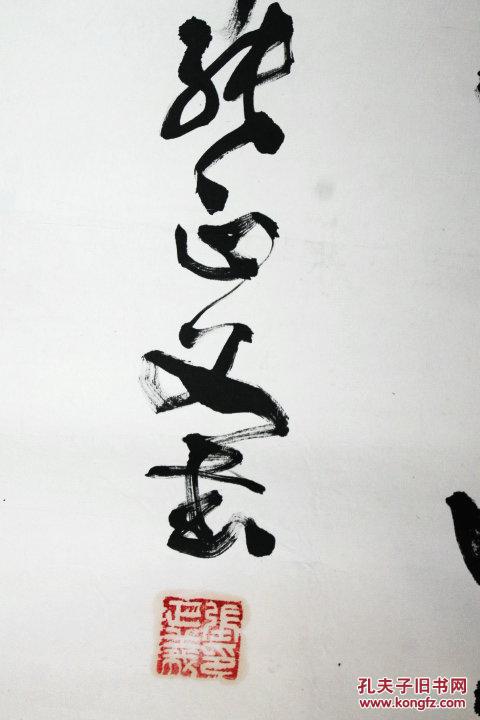 张正义书
張正義印
孔夫子旧书网
www.kongfz.com